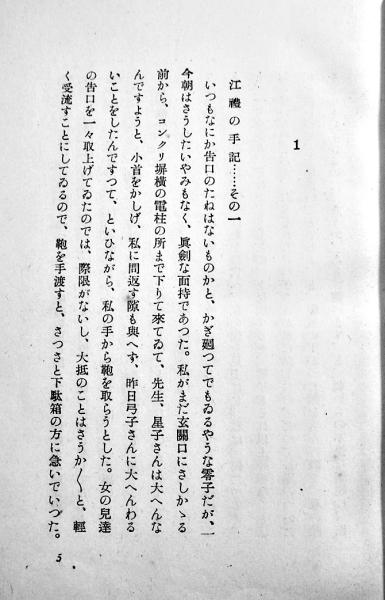 1
江禮の手記……その一
いつもなにか告口のたねはないものかと、かぎ廻つてでもゐるやうな零子だが、一
今朝はさうしたいやみもなく、眞劍な面持であつた。私がまだ玄關口にさしかゝる
前から、コンクリ塀横の電柱の所まで下りて來てゐて、先生、星子さんは大へんな
んですようと、小首をかしげ、私に問返す隙も與へず、昨日弓子さんに大へんわる
いことをしたんですつて、といひながら、私の手から鞄を取らうとした。女の兒達
の告口を一々取上げてゐたのでは、際限がないし、大抵のことはさうか〳〵と、輕
く受流すことにしてゐるので、鞄を手渡すと、さつさと下駄箱の方に急いでいつた。
5